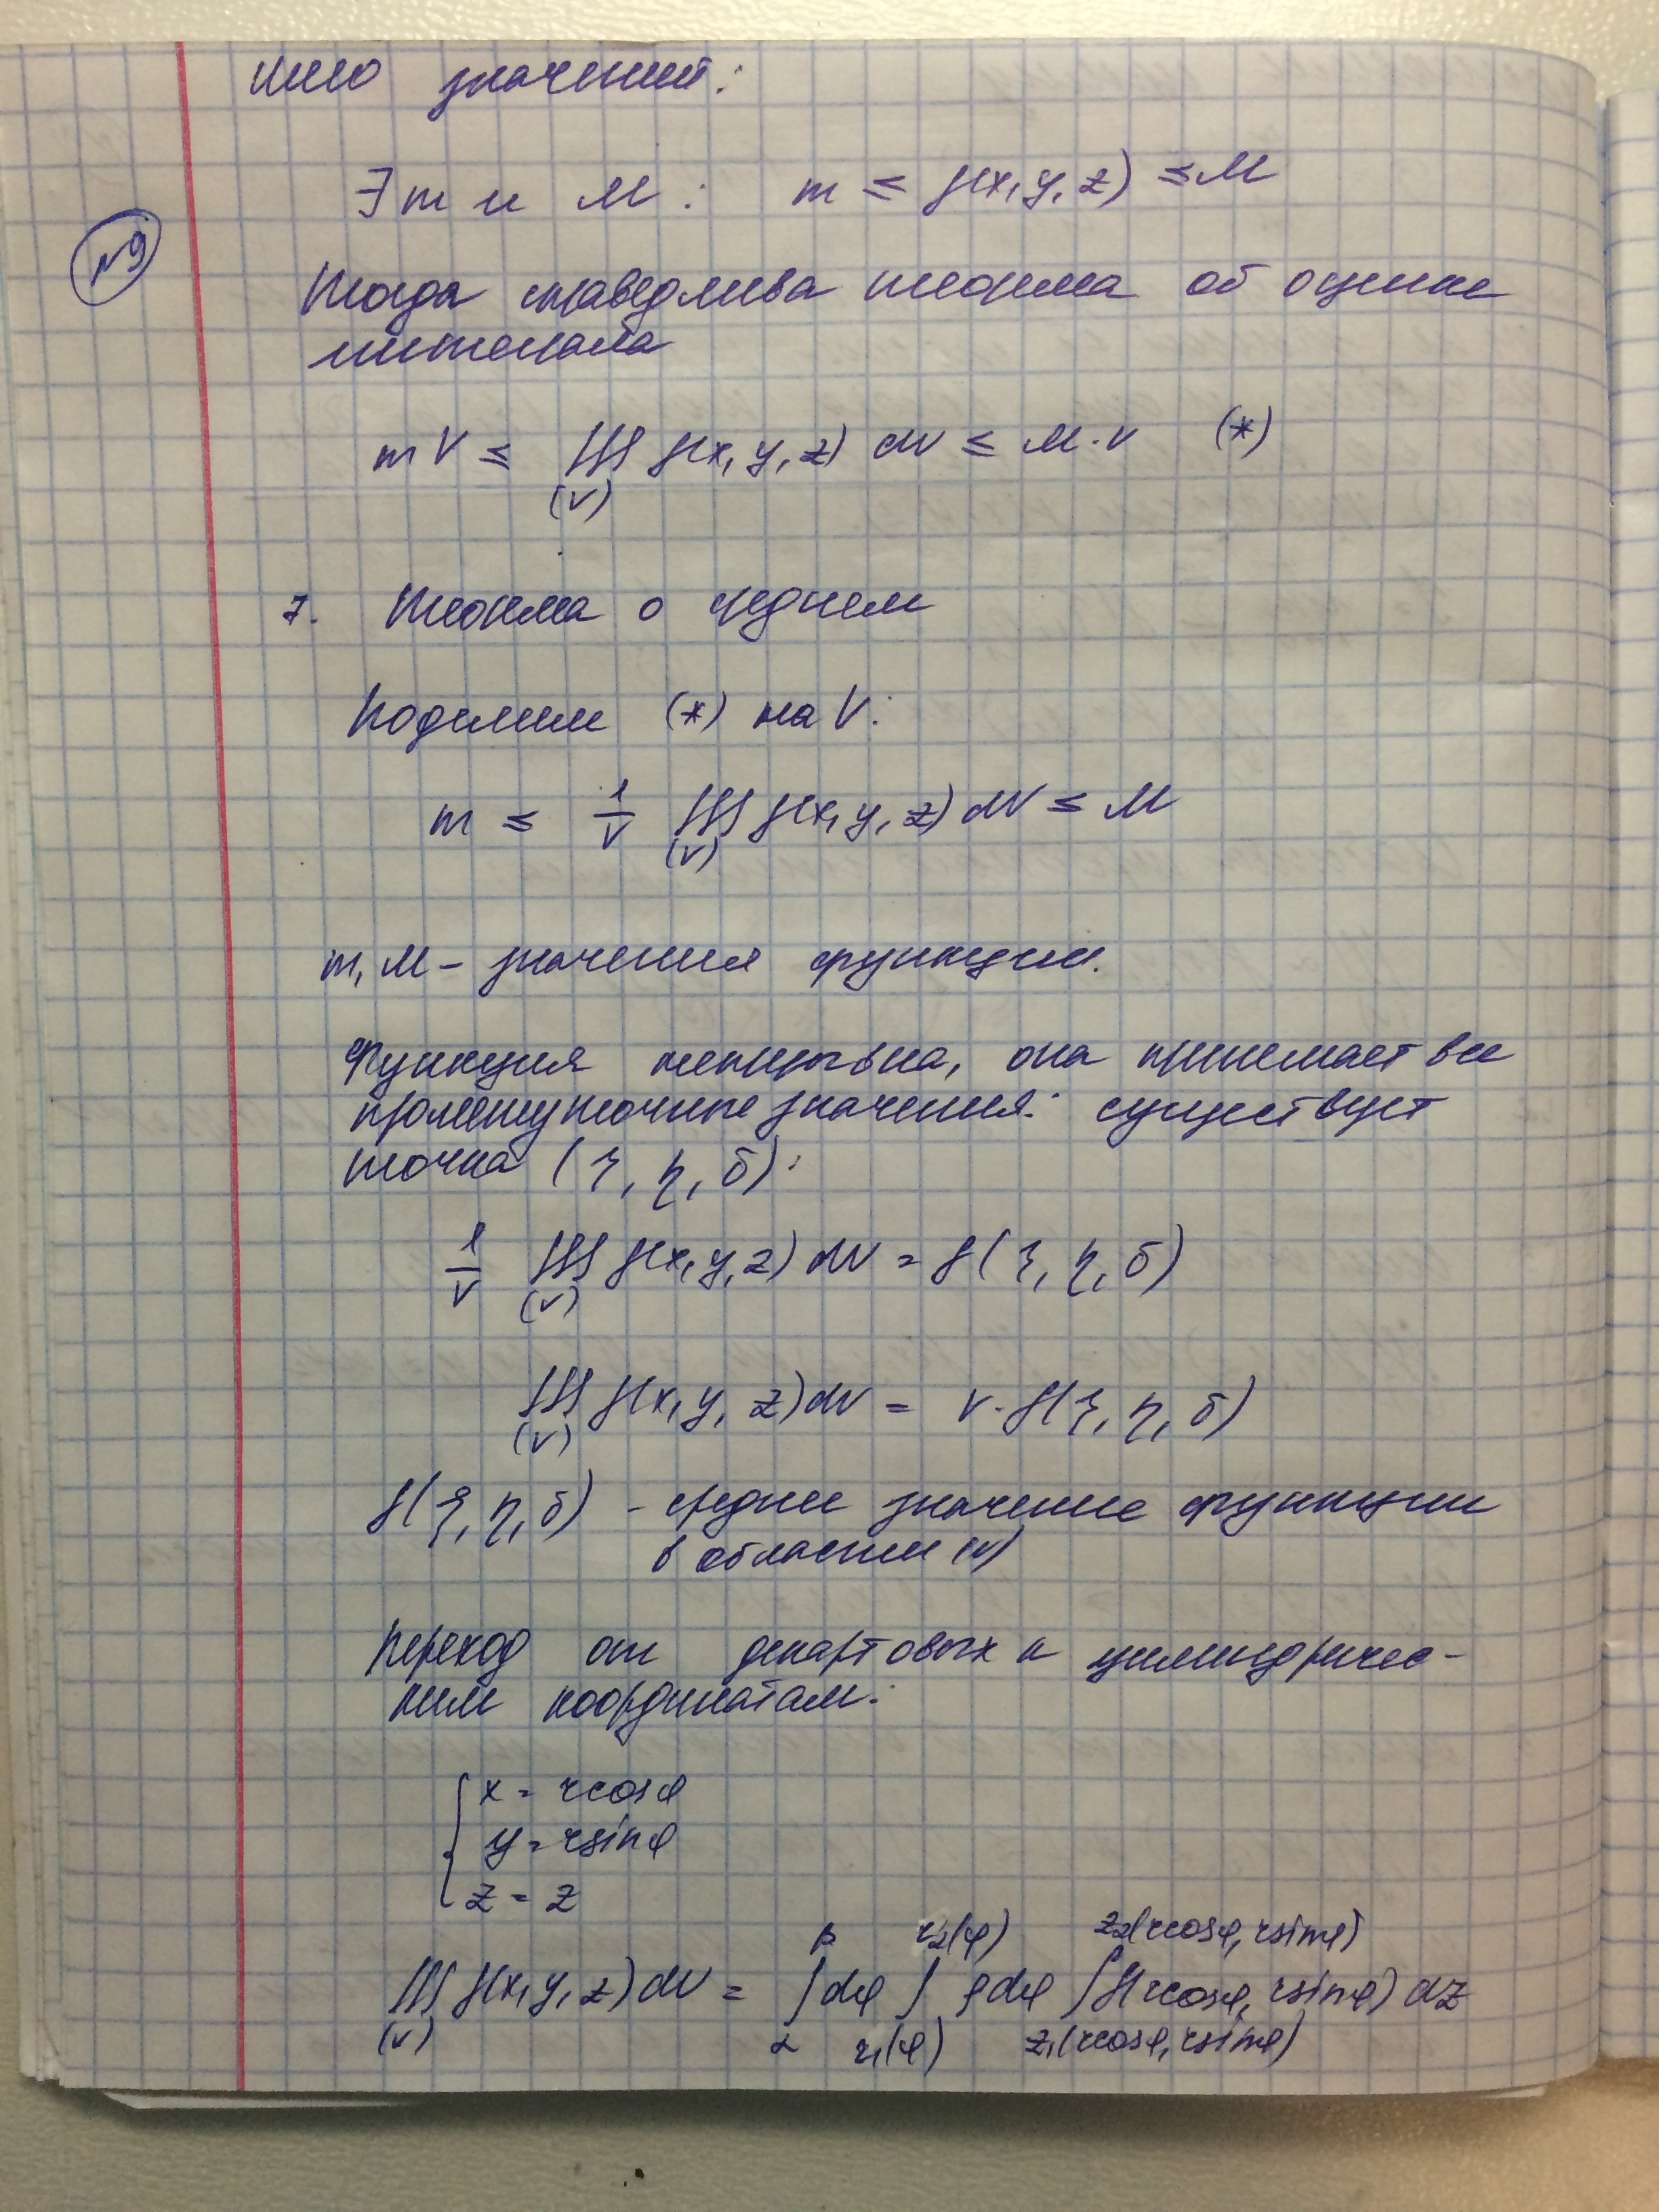 значений:
∃ m и M: m ≤ f(x, y, z) ≤ M
№9
Тогда справедлива теорема об оценке
интеграла
mV ≤ ∭ f(x, y, z) dV ≤ M·V (*)
(V)
7. Теорема о среднем
Поделим (*) на V:
m ≤ 1/V ∭ f(x, y, z) dV ≤ M
(V)
m, M – значения функции.
Функция непрерывна, она принимает все
промежуточные значения: существует
точка (ξ, η, б):
1/V ∭ f(x, y, z) dV = f(ξ, η, б)
(V)
∭ f(x, y, z) dV = V·f(ξ, η, б)
(V)
f(ξ, η, б) – среднее значение функции
в области (V)
Переход от декартовых к цилиндричес-
ким координатам:
{ x = rcosφ
y = rsinφ
z = z
β r₂(φ) z₂(rcosφ, rsinφ)
∭ f(x, y, z) dV = ∫dφ ∫ ρdφ ∫f(rcosφ, rsinφ) dz
(V) α r₁(φ) z₁(rcosφ, rsinφ)